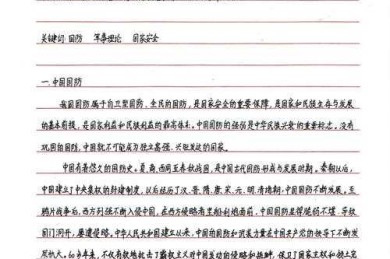 关键词:国防 军事理论 国家安全
一.中国国防
我国国防属于自卫型国防,全民的国防,是国家安全的重要保障,是国家和民族生存与发展
的基本前提,是国家利益和民族利益的最高体现。中国国防的强弱是中华民族兴衰的重要标志。没有
巩固的国防,中国就不可能成为独立富强、兴旺发达的国家。
中国有着悠久的国防史。夏、商、西周至春秋战国,是中国古代国防形成与发展时期。秦朝以后,
中国建立了中央集权的封建制度,以后经历了汉、晋、隋、唐、宋、元、明、清诸朝,中国国防不断发展。至
鸦片战争后,西方列强不断入侵中国,在西方侵略者坚船利炮面前,中国国防显得脆弱不堪,导致
国门洞开,屡遭侵略。中华人民共和国建立以来,中国的国防和武装力量在中国共产党的领导下不断发
展壮大。50多年来,不仅有效地抗击了霸权主义对中国发动的侵略和挑衅,保卫了国家主权和领土完